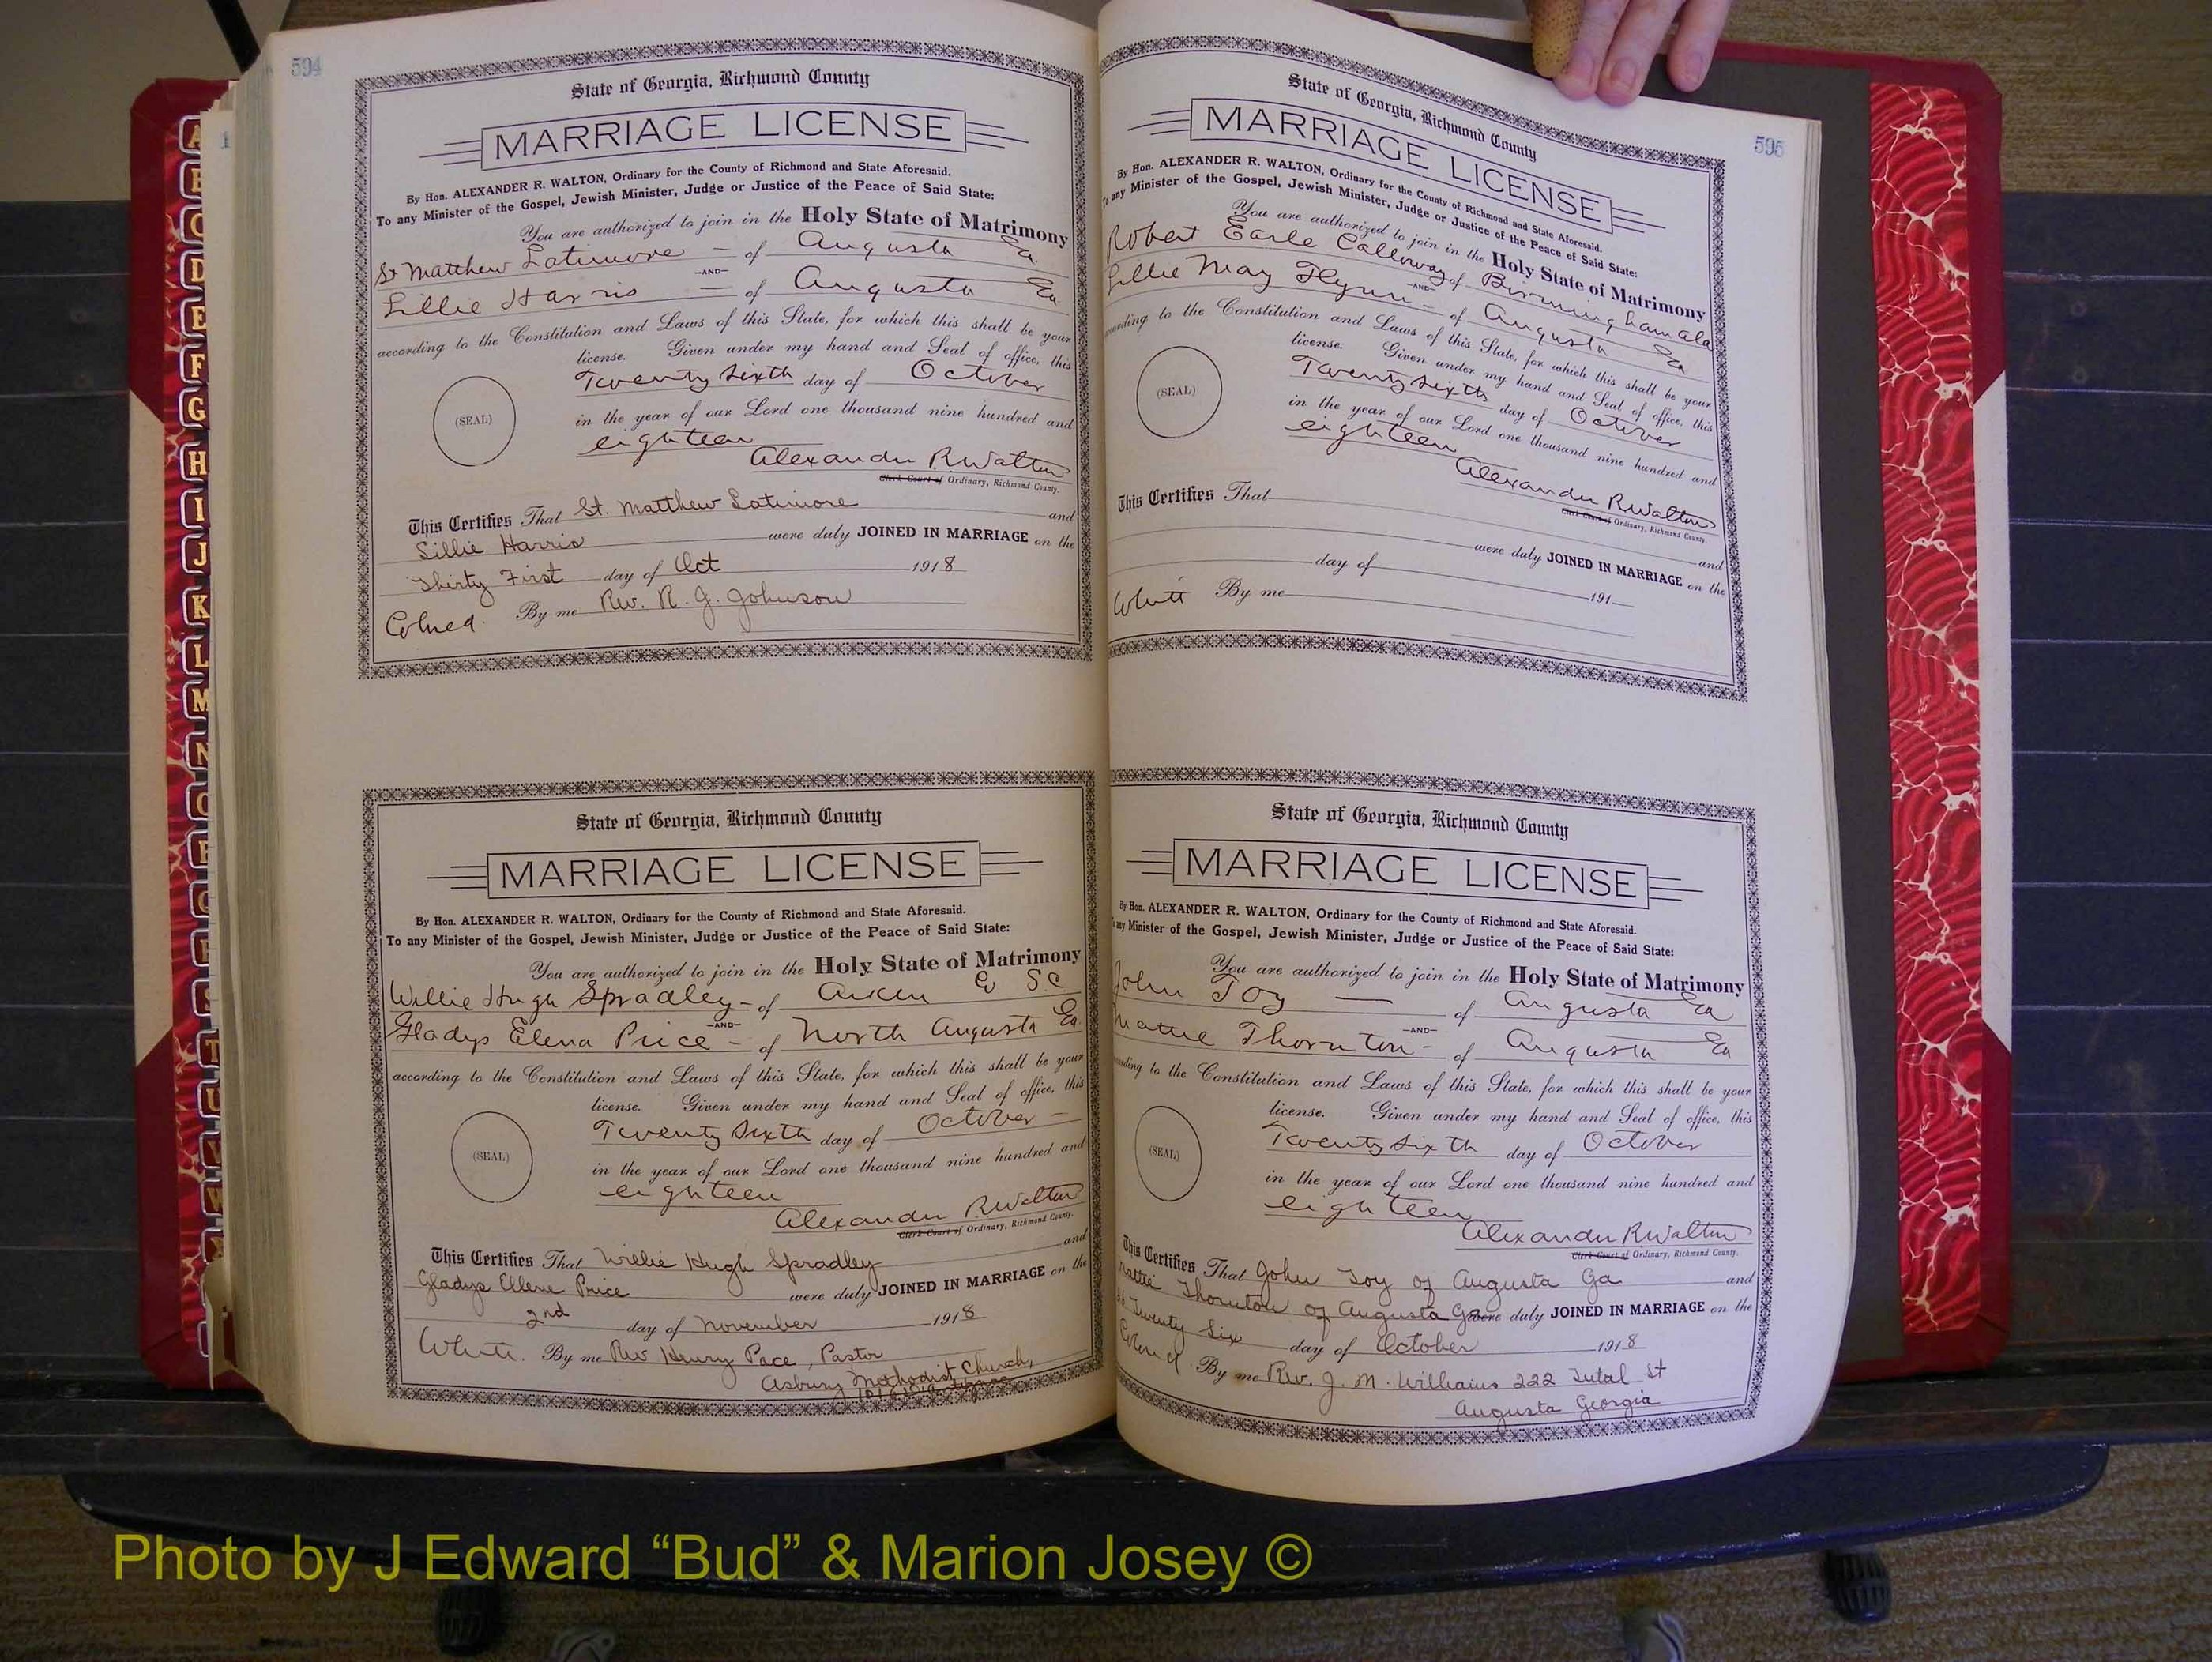 594
State of Georgia, Richmond County
MARRIAGE LICENSE
By Hon. ALEXANDER R. WALTON, Ordinary for the County of Richmond and State Aforesaid.
To any Minister of the Gospel, Jewish Minister, Judge or Justice of the Peace of Said State:
You are authorized to join in the Holy State of Matrimony
St Matthew Latimore — of Augusta Ga
—AND—
Lillie Harris — of Augusta Ga
according to the Constitution and Laws of this State, for which this shall be your
license. Given under my hand and Seal of office, this
Twenty Sixth day of October
(SEAL)
in the year of our Lord one thousand nine hundred and
eighteen
Alexander R Walton
Clerk Court of Ordinary, Richmond County.
This Certifies That St. Matthew Latimore and
Lillie Harris were duly JOINED IN MARRIAGE on the
Thirty First day of Oct 1918
Colored. By me Rev. R. J. Johnson
State of Georgia, Richmond County
MARRIAGE LICENSE
By Hon. ALEXANDER R. WALTON, Ordinary for the County of Richmond and State Aforesaid.
To any Minister of the Gospel, Jewish Minister, Judge or Justice of the Peace of Said State:
You are authorized to join in the Holy State of Matrimony
Willie Hugh Spradley - of Aiken Co SC
—AND—
Gladys Elena Price - of North Augusta Ga
according to the Constitution and Laws of this State, for which this shall be your
license. Given under my hand and Seal of office, this
Twenty Sixth day of October —
(SEAL)
in the year of our Lord one thousand nine hundred and
eighteen
Alexander R Walton
Clerk Court of Ordinary, Richmond County.
This Certifies That Willie Hugh Spradley and
Gladys Ellene Price were duly JOINED IN MARRIAGE on the
2nd day of November 1918
White. By me Rev Henry Pace, Pastor
Asbury Methodist Church,
595
State of Georgia, Richmond County
MARRIAGE LICENSE
By Hon. ALEXANDER R. WALTON, Ordinary for the County of Richmond and State Aforesaid.
To any Minister of the Gospel, Jewish Minister, Judge or Justice of the Peace of Said State:
You are authorized to join in the Holy State of Matrimony
Robert Earle Calloway of Birmingham Ala
—AND—
Lillie May Flynn - of Augusta Ga
according to the Constitution and Laws of this State, for which this shall be your
license. Given under my hand and Seal of office, this
Twenty Sixth day of October
(SEAL)
in the year of our Lord one thousand nine hundred and
eighteen
Alexander R Walton
Clerk Court of Ordinary, Richmond County.
This Certifies That and
were duly JOINED IN MARRIAGE on the
day of 191
White By me
State of Georgia, Richmond County
MARRIAGE LICENSE
By Hon. ALEXANDER R. WALTON, Ordinary for the County of Richmond and State Aforesaid.
any Minister of the Gospel, Jewish Minister, Judge or Justice of the Peace of Said State:
You are authorized to join in the Holy State of Matrimony
John Toy — of Augusta Ga
—AND—
Mattie Thornton - of Augusta Ga
according to the Constitution and Laws of this State, for which this shall be your
license. Given under my hand and Seal of office, this
Twenty Sixth day of October
(SEAL)
in the year of our Lord one thousand nine hundred and
eighteen
Alexander R Walton
Clerk Court of Ordinary, Richmond County.
This Certifies That John Toy of Augusta Ga and
Mattie Thornton of Augusta Ga were duly JOINED IN MARRIAGE on the
Twenty Six day of October 1918
Colored. By me Rev. J. M. Williams 222 St
Augusta Georgia
A
B
C
D
E
F
G
H
I
J
K
L
M
N
O
P
Q
R
S
T
U
V
W
Photo by J Edward “Bud” & Marion Josey ©